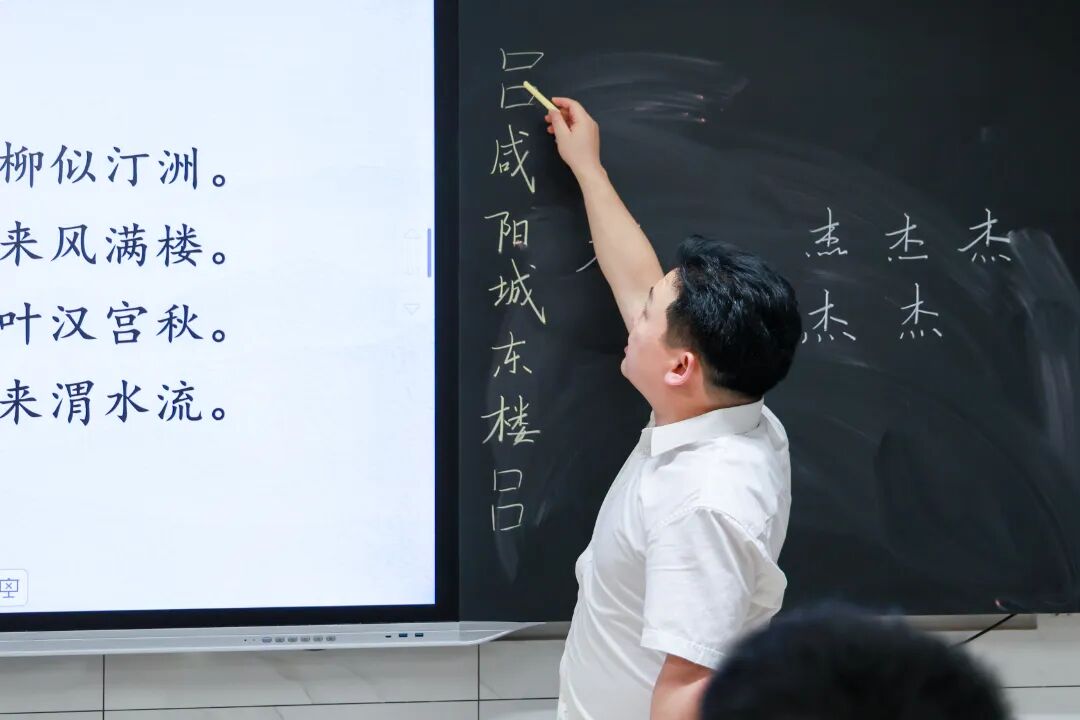 柳似汀洲。
来风满楼。
叶汉宫秋。
来渭水流。
吕咸阳城东楼吕
杰 杰 杰
杰 杰